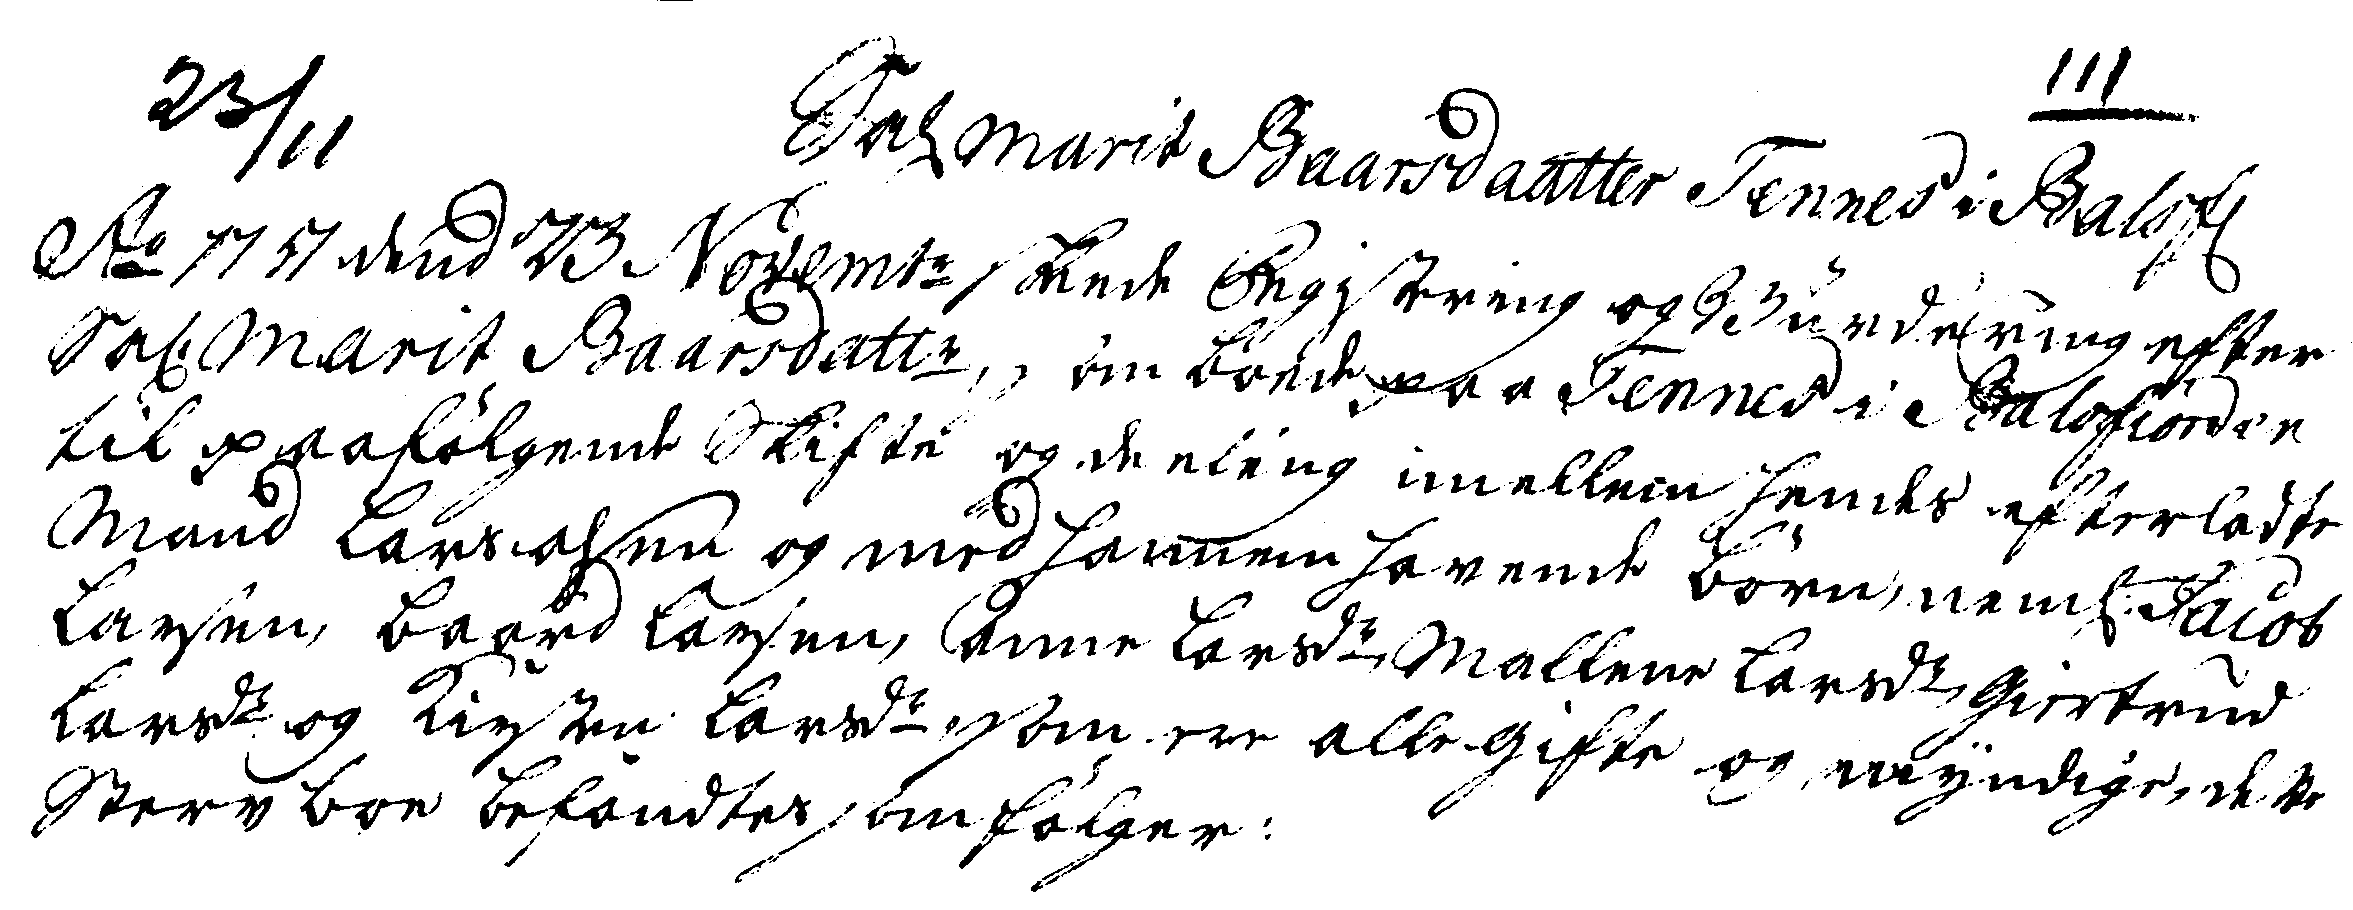 23/11
III
Sal. Marit Baarsdaatter Tennes i Balsf.
Ao 1757 dend 23 Novembr. skeede Registering og Wurdering efter
Sal. Marit Baarsdattr., som boede paa Tennes i Balsfiorden
til paafölgende Skifte og deeling imellem hendes efterladte
Mand Lars olsen og med hannem havende Börn, neml. Jacob
Larsen, Baard Larsen, Anne Larsdr., Mallene Larsdr., Giertrud
Larsdr. og Kirsten Larsdr., som ere alle gifte og myndige, dette
Stervboe befandtes som fölger: